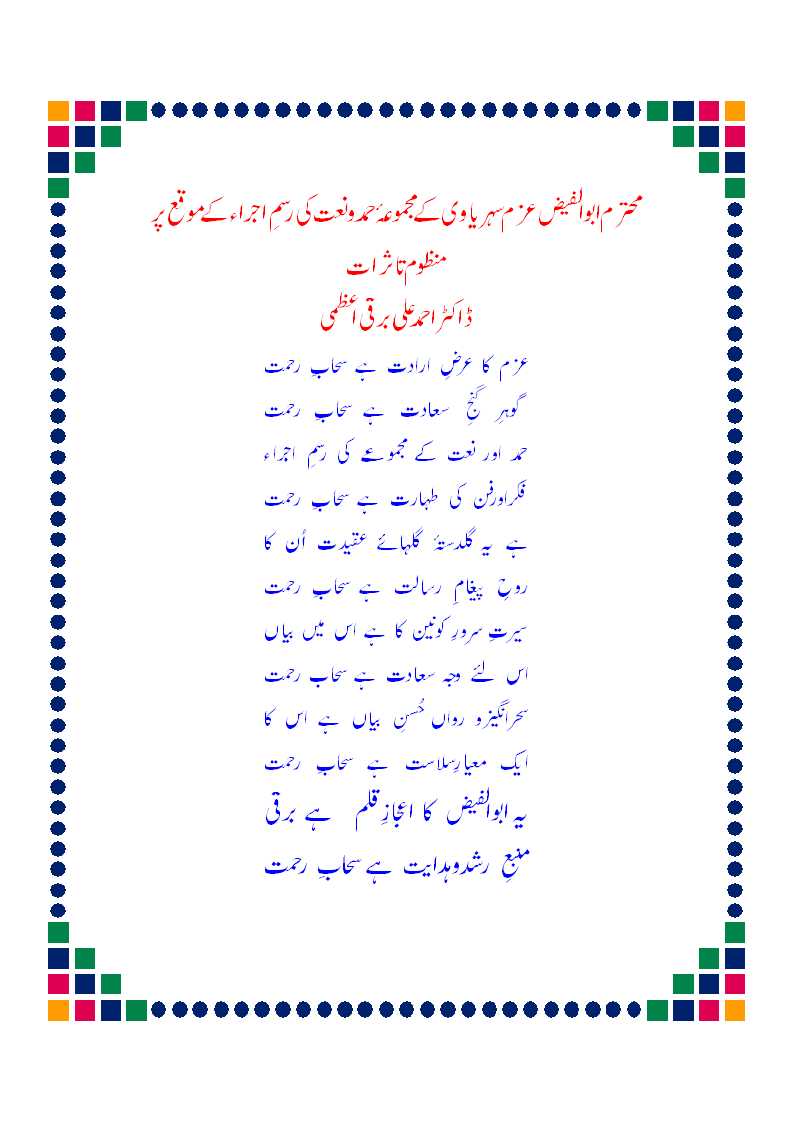 محترم ابوالفیض عزم سہریاوی کے مجموعۂ حمد و نعت کی رسمِ اجراء کے موقع پر
منظوم تاثرات
ڈاکٹر احمد علی برقی اعظمی
عزم کا عرضِ ارادت ہے سحابِ رحمت
گوہرِ گنجِ سعادت ہے سحابِ رحمت
حمد اور نعت کے مجموعے کی رسمِ اجراء
فکراورفن کی طہارت ہے سحابِ رحمت
ہے یہ گلدستۂ گلہائے عقیدت اُن کا
روحِ پیغامِ رسالت ہے سحابِ رحمت
سیرتِ سرورِ کونین کا ہے اس میں بیاں
اس لئے وجہ سعادت ہے سحاب رحمت
سحرانگیز و رواں حُسنِ بیاں ہے اس کا
ایک معیارِسلاست ہے سحابِ رحمت
یہ ابوالفیض کا اعجازِ قلم ہے برقی
منبعِ رشدوہدایت ہے سحابِ رحمت